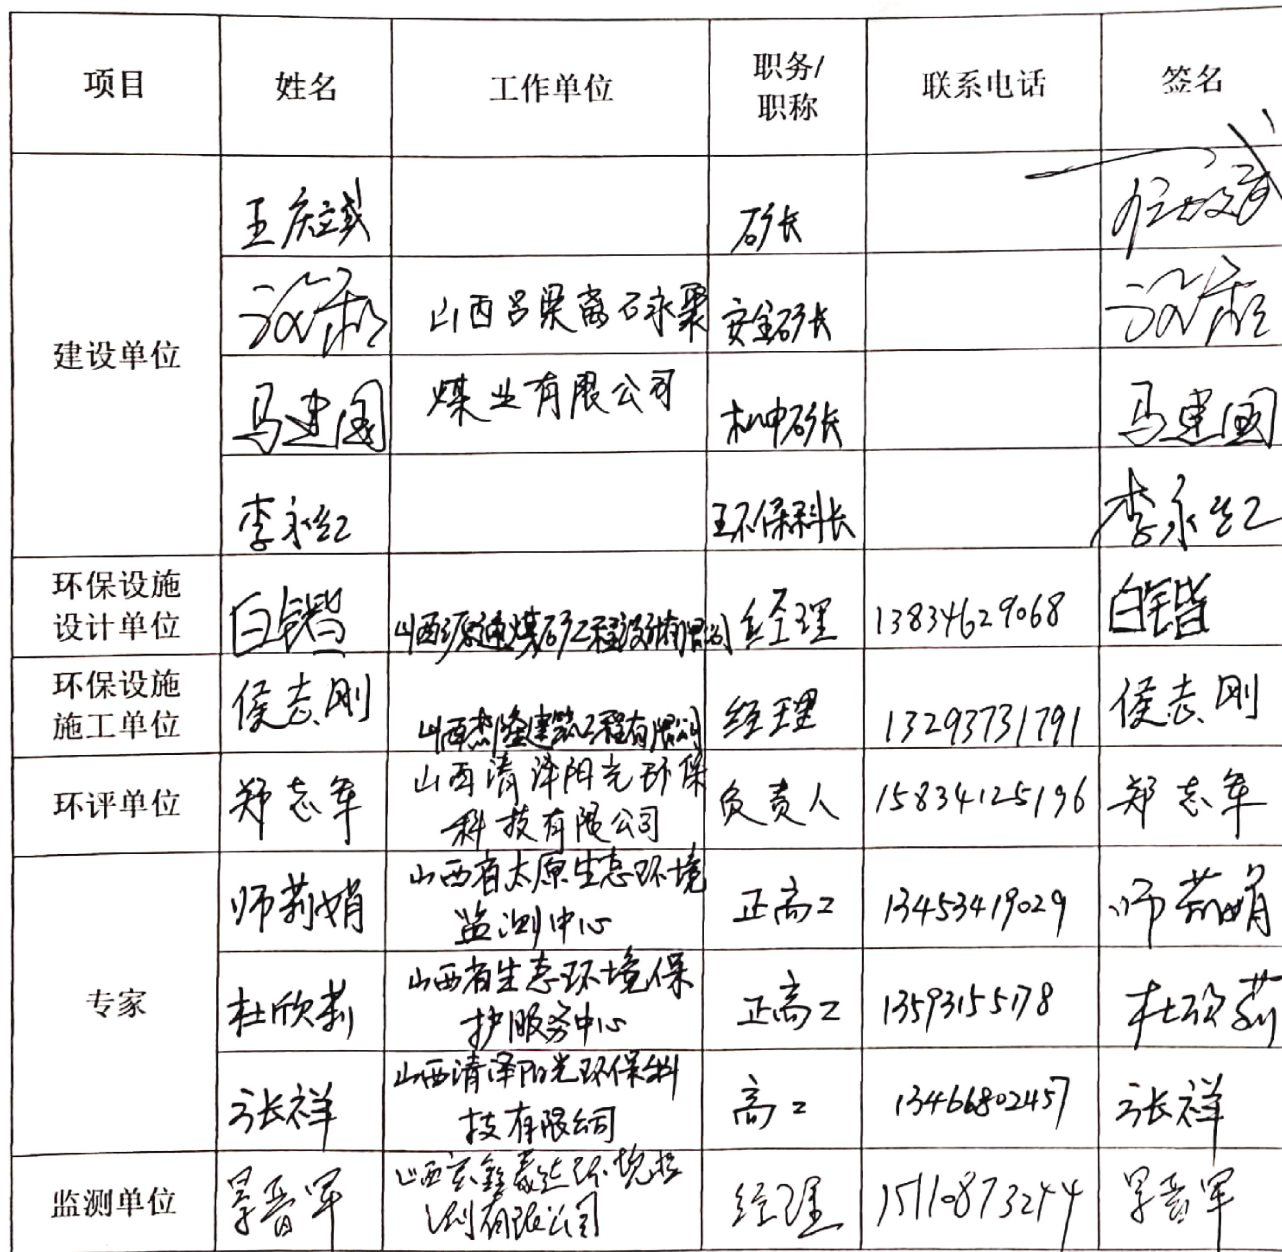 项目 姓名 工作单位 职务/职称 联系电话 签名
建设单位
王庆斌 矿长
山西吕梁离石永聚 安全矿长
马建国 煤业有限公司 机电矿长 马建国
李永红 环保科长 李永红
环保设施设计单位 白锴 山西源通煤矿工程设计有限公司 经理 13834629068 白锴
环保设施施工单位 侯志刚 山西杰隆建筑工程有限公司 经理 13293731791 侯志刚
环评单位 郑志军 山西清泽阳光环保科技有限公司 负责人 15834125196 郑志军
专家
师莉娟 山西省太原生态环境监测中心 正高工 13453419029 师莉娟
杜欣莉 山西省生态环境保护服务中心 正高工 13593155178 杜欣莉
张祥 山西清泽阳光环保科技有限公司 高工 13466802457 张祥
监测单位 晋军 山西 环境检测有限公司 经理 15110873244 晋军